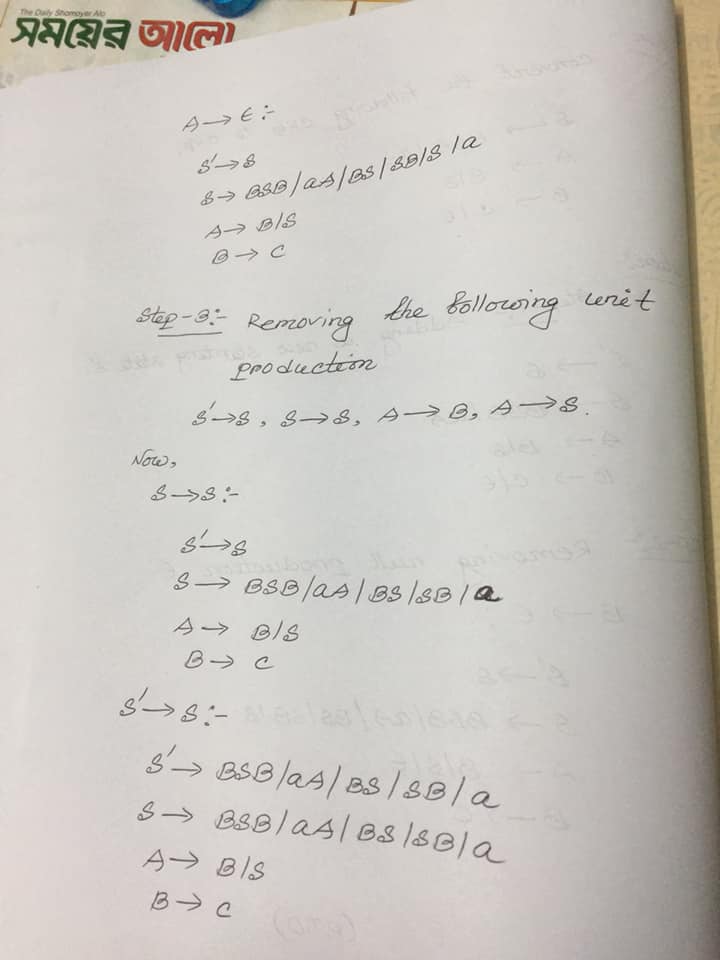 The Daily Shomoyer Alo
সময়ের আলো
A → ϵ :-
S' → S
S → BSB / aA / BS / SB / S / a
A → B/S
B → C
Step-3:- Removing the following unit
production
S' → S, S → S, A → B, A → S.
Now,
S → S :-
S' → S
S → BSB / aA / BS / SB / a
A → B/S
B → C
S' → S :-
S' → BSB / aA / BS / SB / a
S → BSB / aA / BS / SB / a
A → B/S
B → C